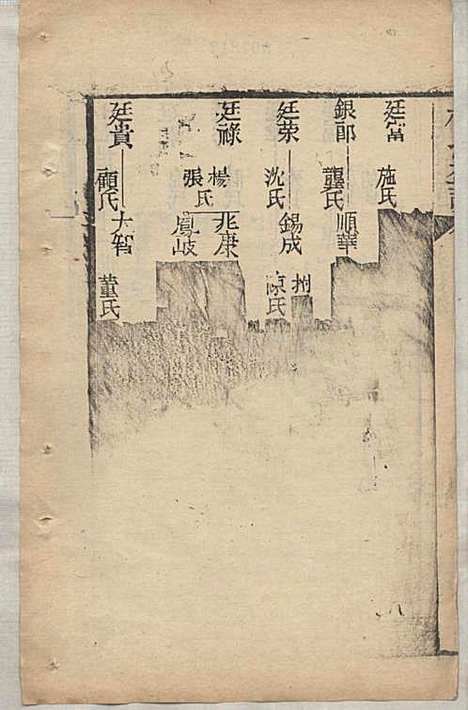 廷富
施氏
銀郎
順華
龔氏
廷榮
錫成
沈氏
廷祿
楊
張氏
兆康
鳳岐
廷貴
大智
顧氏
董氏